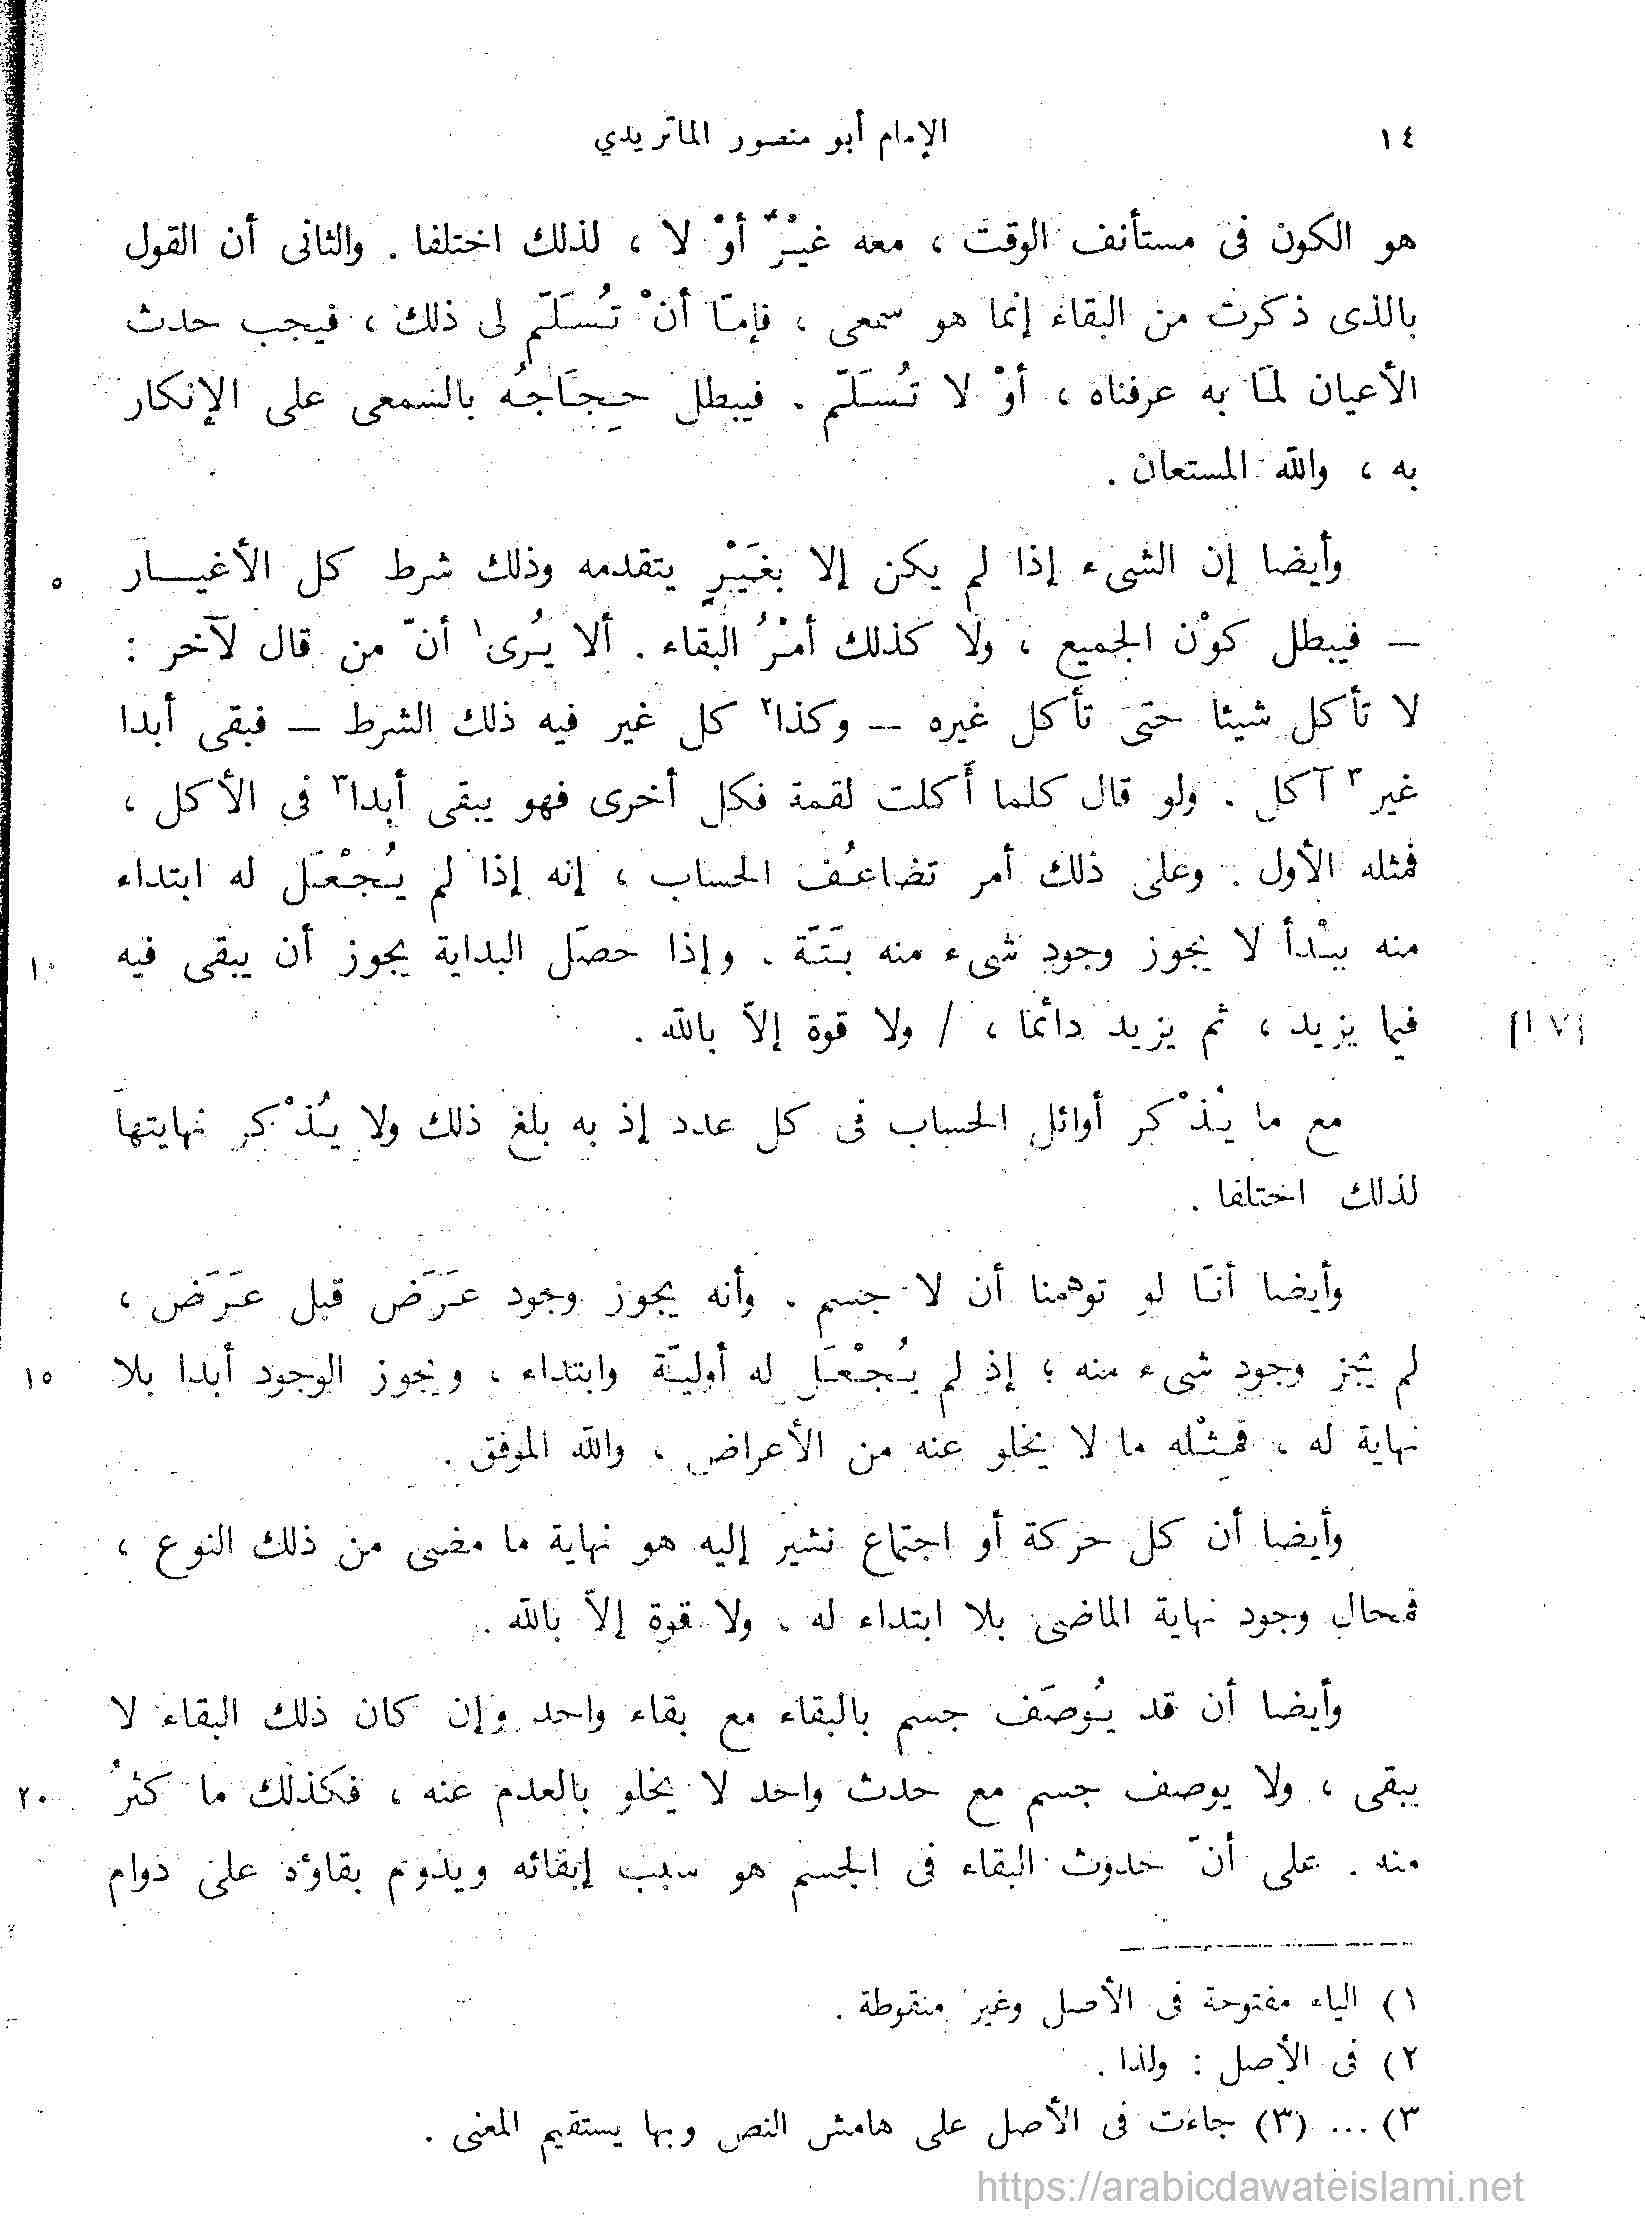 ١٤ الإمام أبو منصور الماتريدي
هو الكون فى مستأنف الوقت ، معه غيْرٌ أوْ لا ، لذلك اختلفا . والثانى أن القول
بالذى ذكرت من البقاء إنما هو سمعى ، فإمّا أنْ تُسَلّم لى ذلك ، فيجب حدث
الأعيان لمَا به عرفناه ، أوْ لا تُسَلّم . فيبطل حِجَاجُه بالسمعى على الإنكار
به ، والله المستعان .
وأيضا إن الشىء إذا لم يكن إلا بغَيْرٍ يتقدمه وذلك شرط كل الأغيـــار ٥
– فيبطل كوْن الجميع ، ولا كذلك أمْرُ البقاء . ألا يُرى١ أنّ من قال لآخر :
لا تأكل شيئا حتى تأكل غيره – وكذا٢ كل غير فيه ذلك الشرط – فبقى أبدا
غير٣ آكل . ولو قال كلما أكلت لقمة فكل أخرى فهو يبقى أبدا٣ فى الأكل ،
فمثله الأول . وعلى ذلك أمر تضاعُف الحساب ، إنه إذا لم يُجْعَل له ابتداء
منه يبْدأ لا يجوز وجود شىء منه بَتَة . وإذا حصَل البداية يجوز أن يبقى فيه ١٠
[٧ ا] فيما يزيد ، ثم يزيد دائما ، / ولا قوة إلاّ بالله .
مع ما يُذْكر أوائل الحساب فى كل عدد إذ به بلغ ذلك ولا يُذْكر نهايتها
لذلك اختلفا .
وأيضا أنّا لو توهمنا أن لا جسم . وأنه يجوز وجود عَرَض قبل عَرَض ،
لم يجز وجود شىء منه ؛ إذ لم يُجْعَل له أوليّة وابتداء ، ويجوز الوجود أبدا بلا ١٥
نهاية له ، فمثْله ما لا يخلو عنه من الأعراض ، والله الموفق .
وأيضا أن كل حركة أو اجتماع نشير إليه هو نهاية ما مضى من ذلك النوع ،
فمحال وجود نهاية الماضى بلا ابتداء له ، ولا قوة إلاّ بالله .
وأيضا أن قد يُوصَف جسم بالبقاء مع بقاء واحد وإن كان ذلك البقاء لا
يبقى ، ولا يوصف جسم مع حدث واحد لا يخلو بالعدم عنه ، فكذلك ما كثرُ ٢٠
منه . على أنّ حدوث البقاء فى الجسم هو سبب إبقائه ويدوم بقاؤه على دوام
١) الياء مفتوحة فى الأصل وغير منقوطة .
٢) فى الأصل : ولذا .
٣) ... (٣) جاءت فى الأصل على هامش النص وبها يستقيم المعنى .
https://arabicdawateislami.net